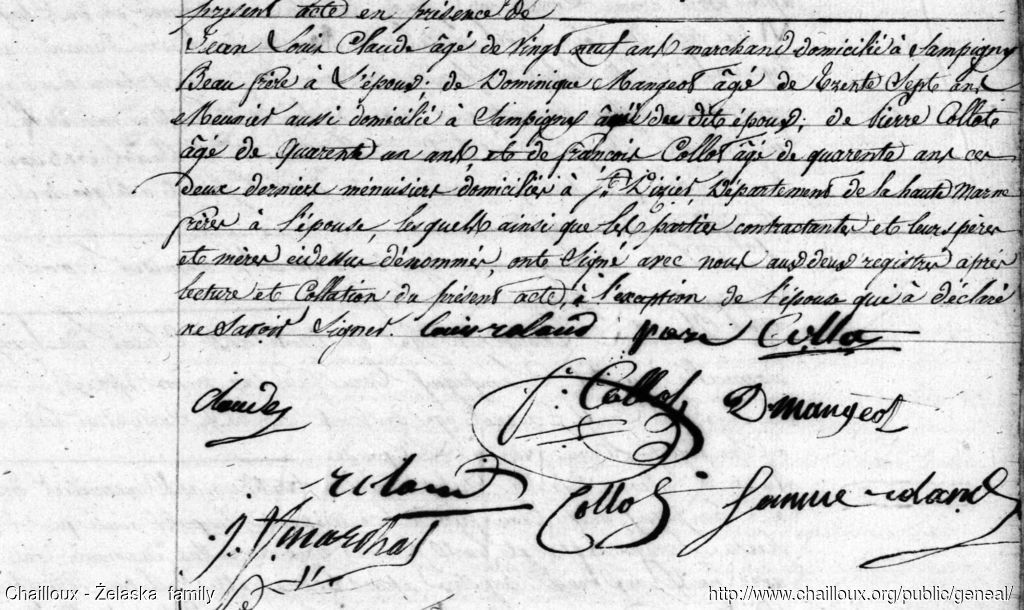 présent acte en présence de
Jean Louis Claude âgé de Vingt neuf ans marchand domicilié à Sampigny
Beau frère à L'époux; de Dominique Mangeot âgé de Trente Sept ans
Meunier aussi domicilié à Sampigny du dit époux; de Pierre Collot
âgé de Quarente un ans et de françois Collot âgé de quarente ans ces
deux derniers ménuisiers domiciliés à St. Dizier, Département de la haute Marne
frères à l'épouse, lesquels ainsi que les parties contractantes et leurs pères
et mères cidessus dénommés, ont Signé avec nous aux deux registres après
lecture et Collation du présent acte, à l'exception de l'épouse qui à déclaré
ne Savoir Signer. Louis roland Collot
Claude f. Collot D mangeot
roland Collot femme roland
J. Marchal
Chailloux - Żelaska family http://www.chailloux.org/public/geneal/